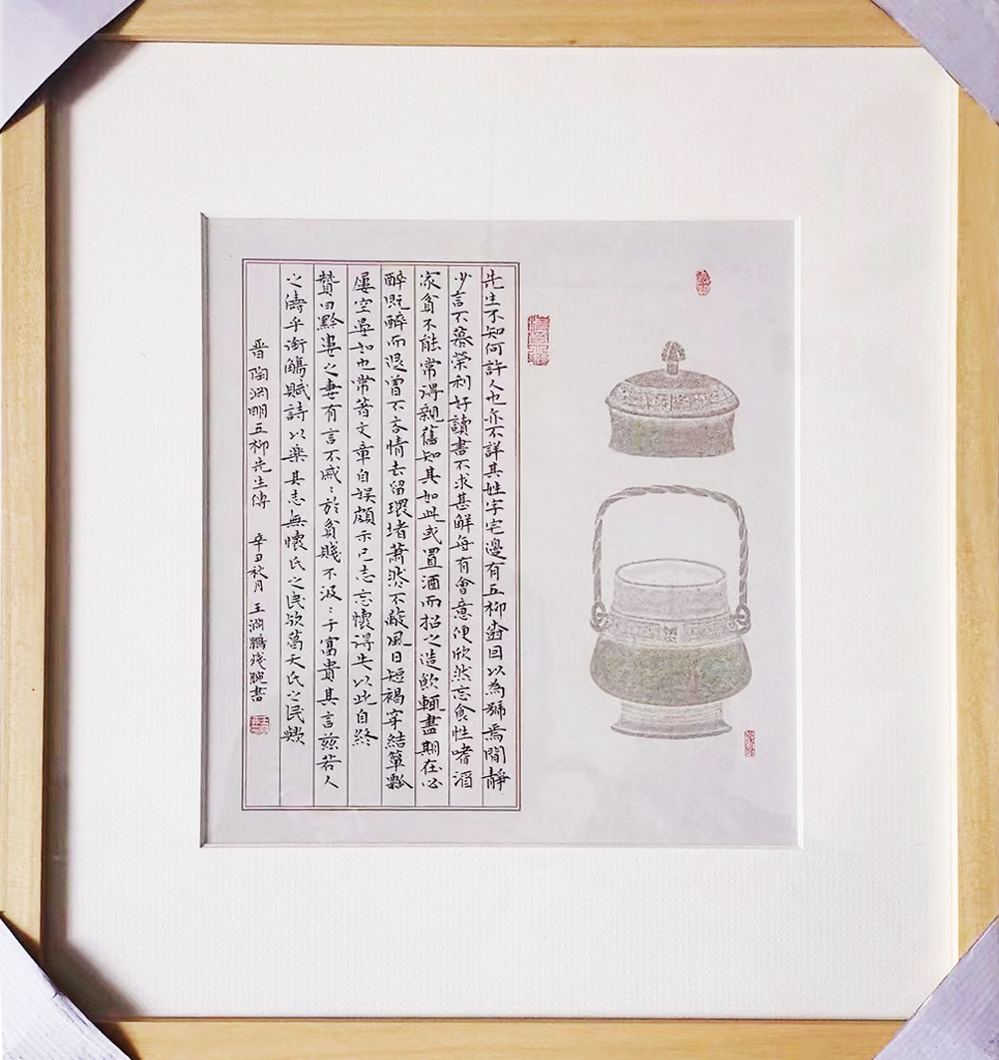 先生不知何許人也亦不詳其姓字宅邊有五柳樹因以為號焉閒静
少言不慕榮利好讀書不求甚解每有會意便欣然忘食性嗜酒
家貧不能常得親舊知其如此或置酒而招之造飲輒盡期在必
醉既醉而退曾不吝情去留環堵蕭然不蔽風日短褐穿結簞瓢
屢空晏如也常著文章自娛頗示己志忘懷得失以此自終
贊曰黔婁之妻有言不戚:於貧賤不汲:于富貴其言茲若人
之儔乎銜觴賦詩以樂其志無懷氏之民歟葛天氏之民歟
晋陶淵明五柳先生傳 辛丑秋月王淵鵬殘腕書